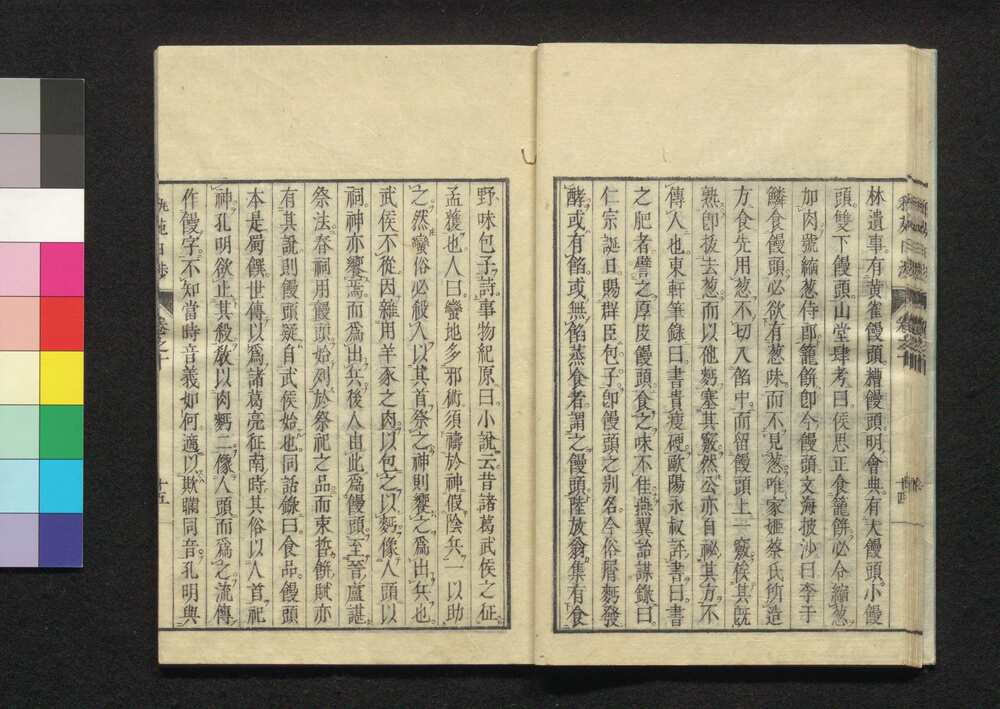 林遺事。有黃雀饅頭。糟饅頭。明會典。有大饅頭。小饅
頭。雙下饅頭。山堂肆考曰。侯思正食籠餠。必令縮葱
加肉。號縮葱侍郎。籠餠。卽今饅頭。文海披沙曰。李于
鱗食饅頭。必欲有葱味。而不見葱。唯家姬蔡氏所造
方食。先用葱不切入餡中。而留饅頭上一竅。俟其既
熟。卽拔去葱。而以他麪塞其竅。然公亦自祕其方。不
傳人也。東軒筆錄曰。書貴瘦硬。歐陽永叔評書曰。書
之肥者。譬之厚皮饅頭。食之味不佳。燕翼詒謀錄曰。
仁宗誕日。賜群臣包子。卽饅頭之別名。今俗屑麪發
酵。或有餡。或無餡。蒸食者。謂之饅頭。陸放翁集有食
野味包子詩。事物紀原曰。小說云。昔諸葛武侯之征
孟獲也。人曰。蠻地多邪術。須禱於神。假陰兵一以助
之。然蠻俗必殺人。以其首祭之。神則饗之。爲出兵也。
武侯不從。因雜用羊豕之肉。以包之以麪。像人頭。以
祠神。亦饗焉。而爲出兵。後人由此爲饅頭。至晉盧諶
祭法。春祠用饅頭。始列於祭祀之品。而束晳餠賦。亦
有其說。則饅頭疑自武侯始也。同話錄曰。食品。饅頭
本是蜀饌。世傳以爲諸葛亮征南時。其俗以人首祀
神。孔明欲止其殺。敎以肉麪二像人頭而爲之。流傳
作饅字。不知當時音義如何。適以欺瞞同音。孔明與
卷之十
十五
十四